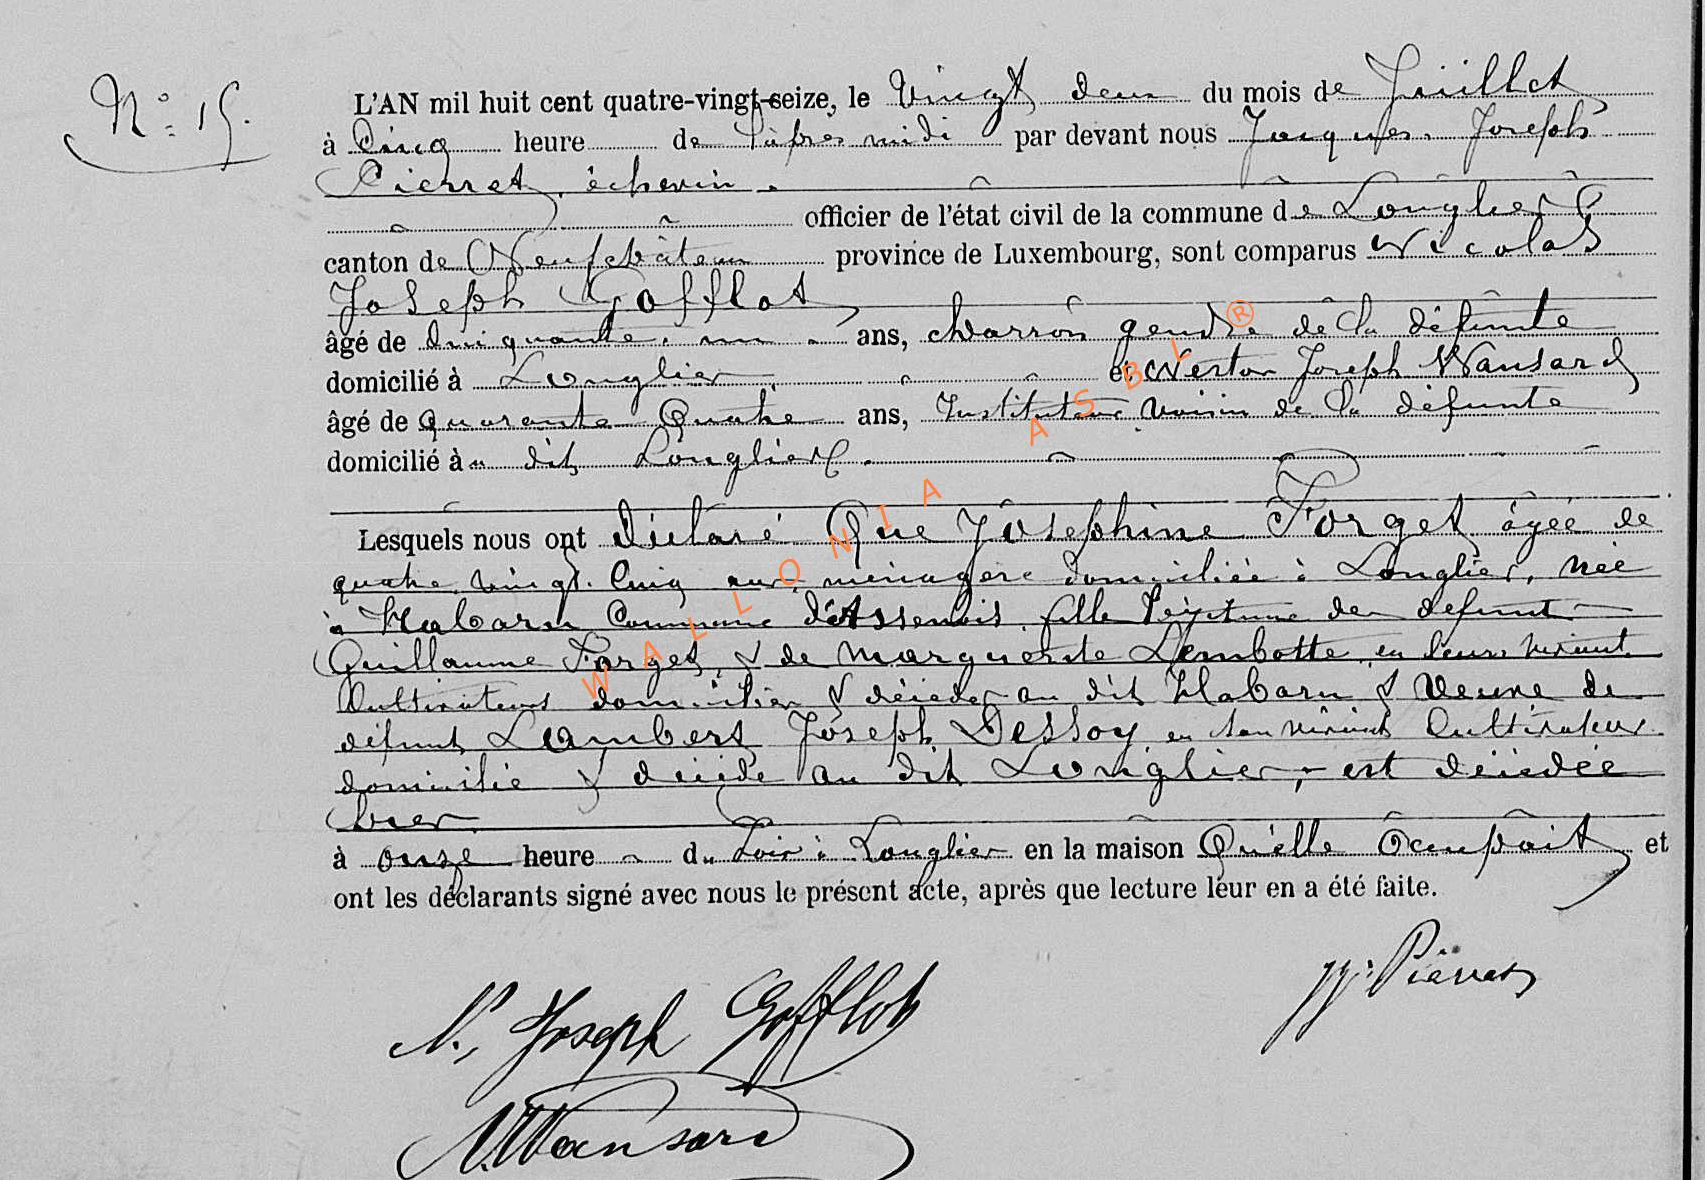 N° 15.
L'AN mil huit cent quatre-vingt-seize, le Vingt deux du mois de Juillet
à Cinq heure de l'après midi par devant nous Jacques Joseph
Pierret, échevin
officier de l'état civil de la commune de Longlier
canton de Neufchâteau province de Luxembourg, sont comparus Nicolas
Joseph Gofflot
âgé de Cinquante un ans, charron gendre de la défunte
domicilié à Longlier et Joseph Wansard
âgé de quarante Quatre ans, Instituteur voisin de la défunte
domicilié à dit Longlier
Lesquels nous ont déclaré Que Joséphine Forget âgée de
quatre vingt Cinq ans ménagère domiciliée à Longlier, née
à Habaru Commune d'Assenois fille légitime de défunt
Guillaume Forget & de Marguerite Lembotte en leurs vivant
Cultivateurs domiciliés & décédés au dit Habaru & Veuve de
défunt Lambert Joseph Dessoy en son vivant Cultivateur
domicilié & décédé au dit Longlier, est décédée
hier
à onze heure du soir à Longlier en la maison Qu'elle Occupait et
ont les déclarants signé avec nous le présent acte, après que lecture leur en a été faite.
JJ. Pierret
N. Joseph Gofflot
N. Wansard
WALLONIA ASBL ®